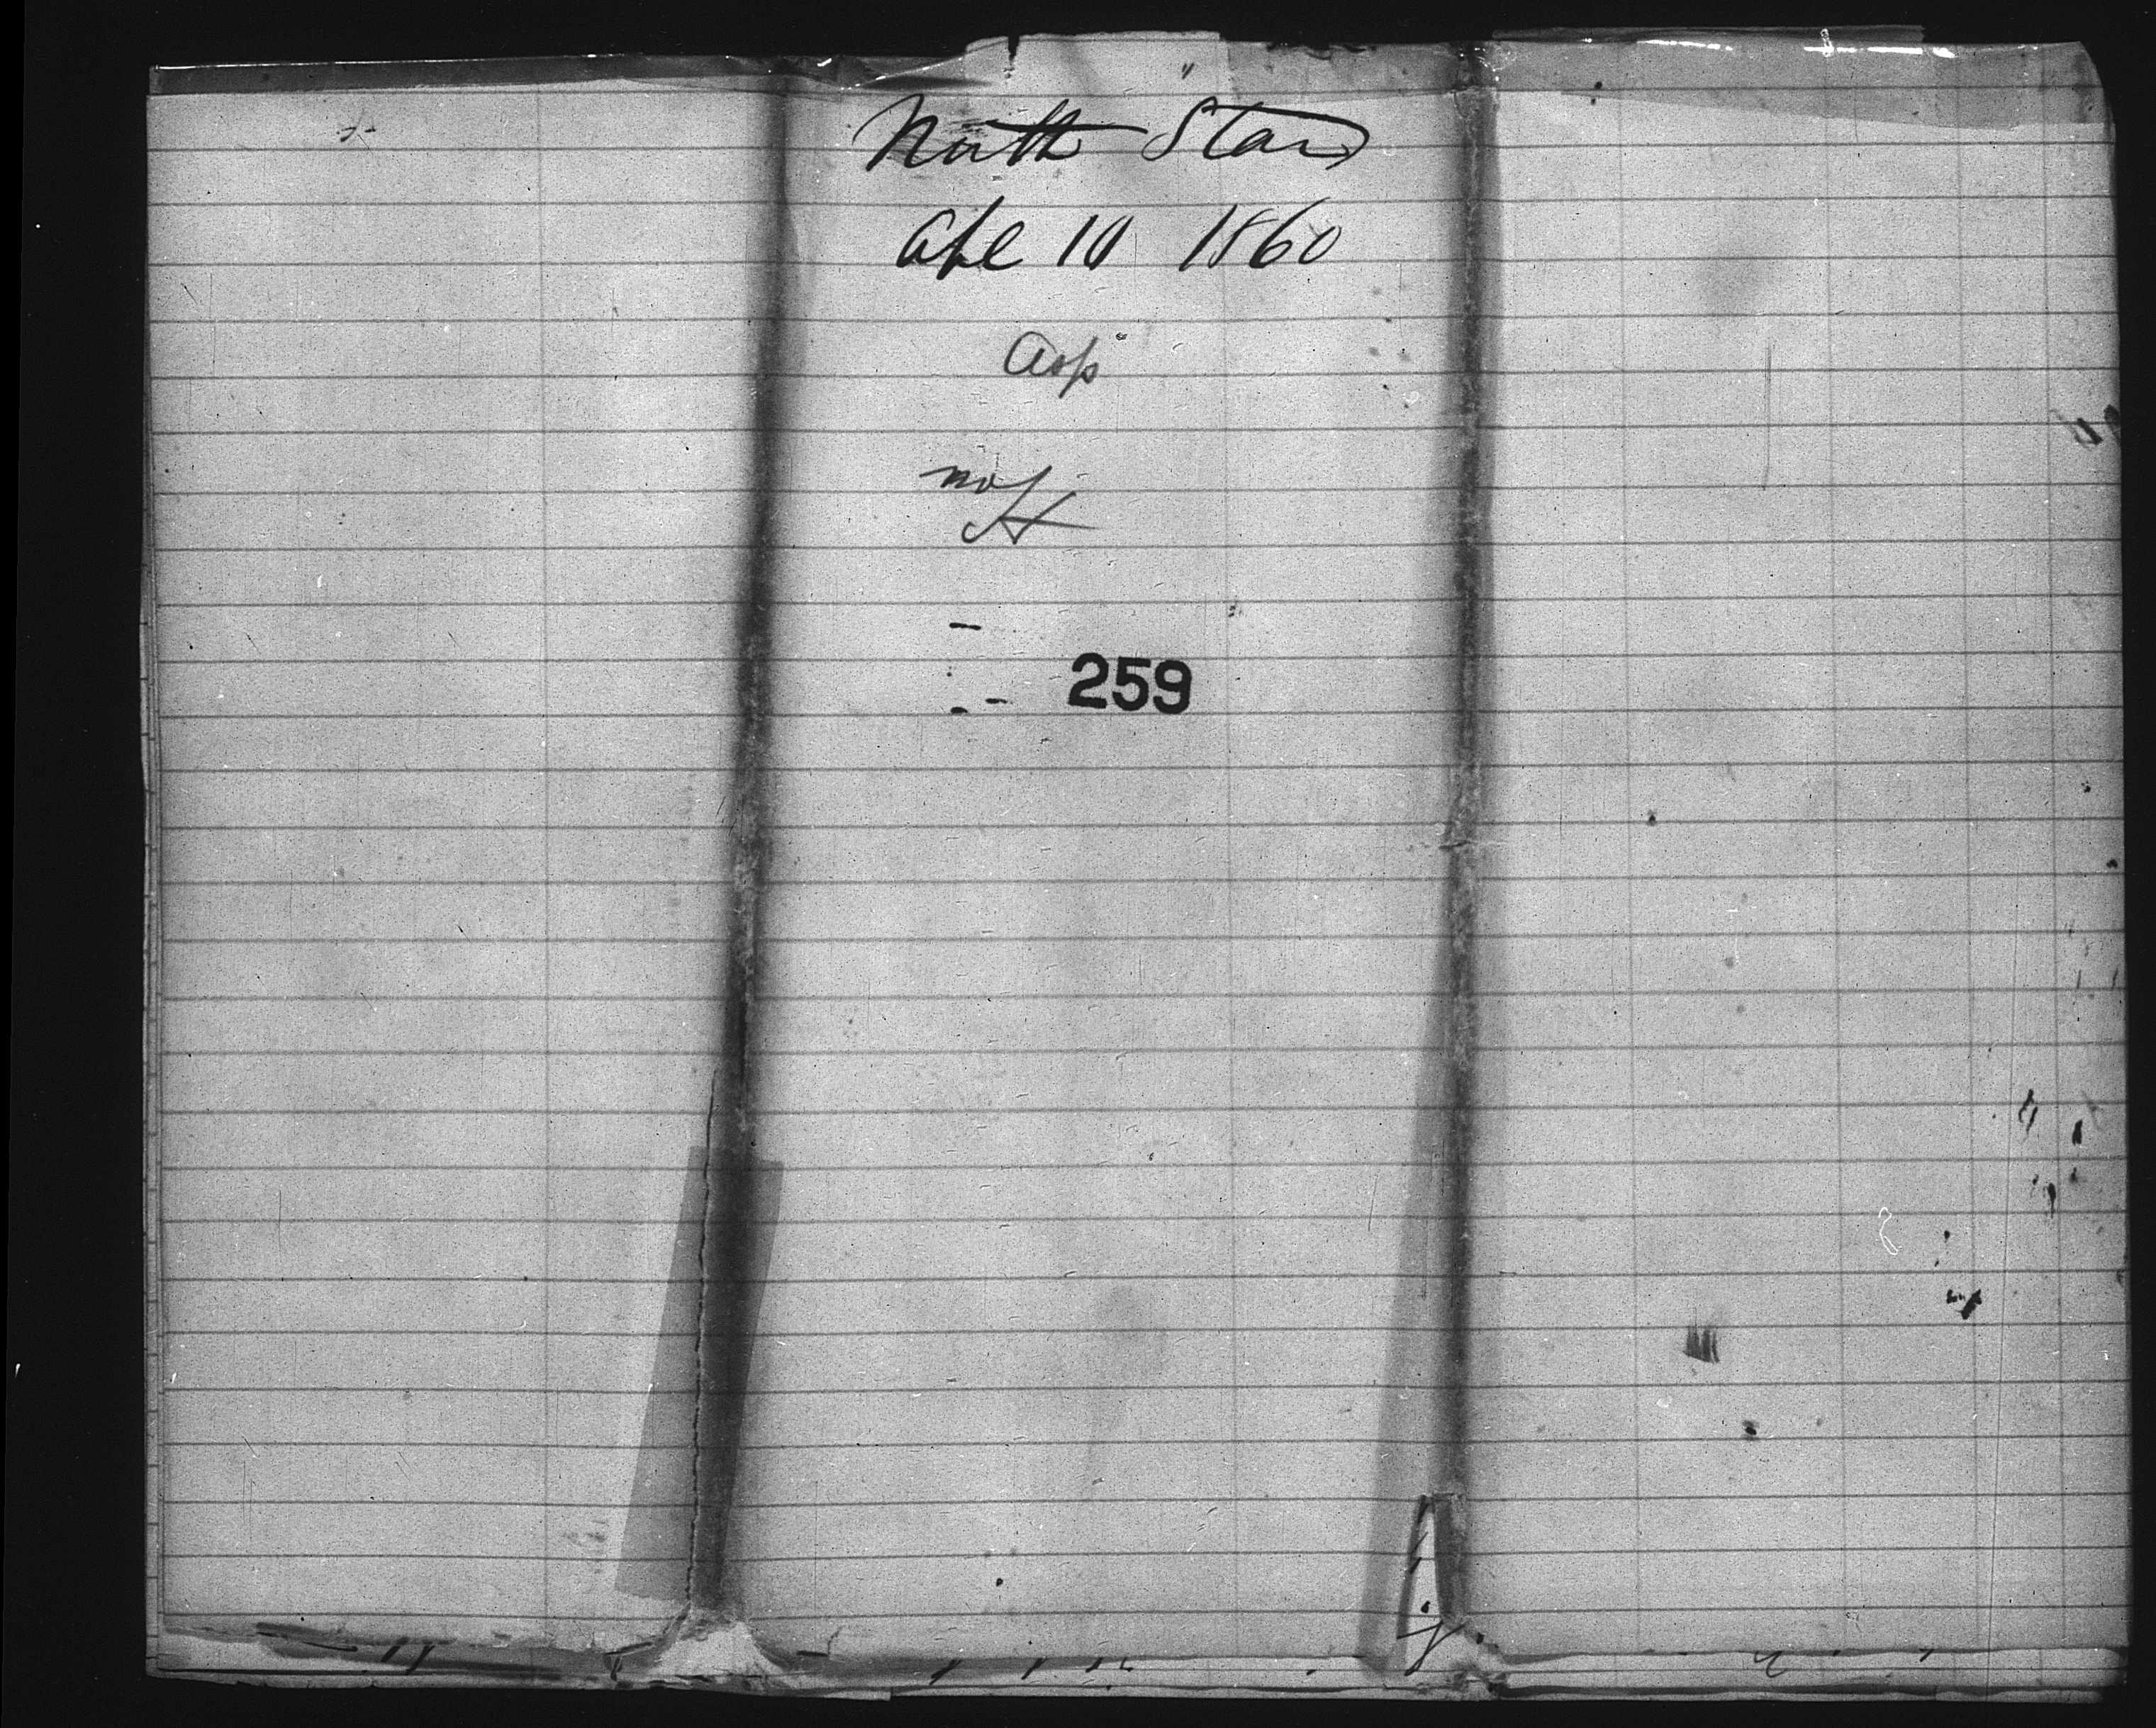 North Star
Apl 10 1860
Asp
259